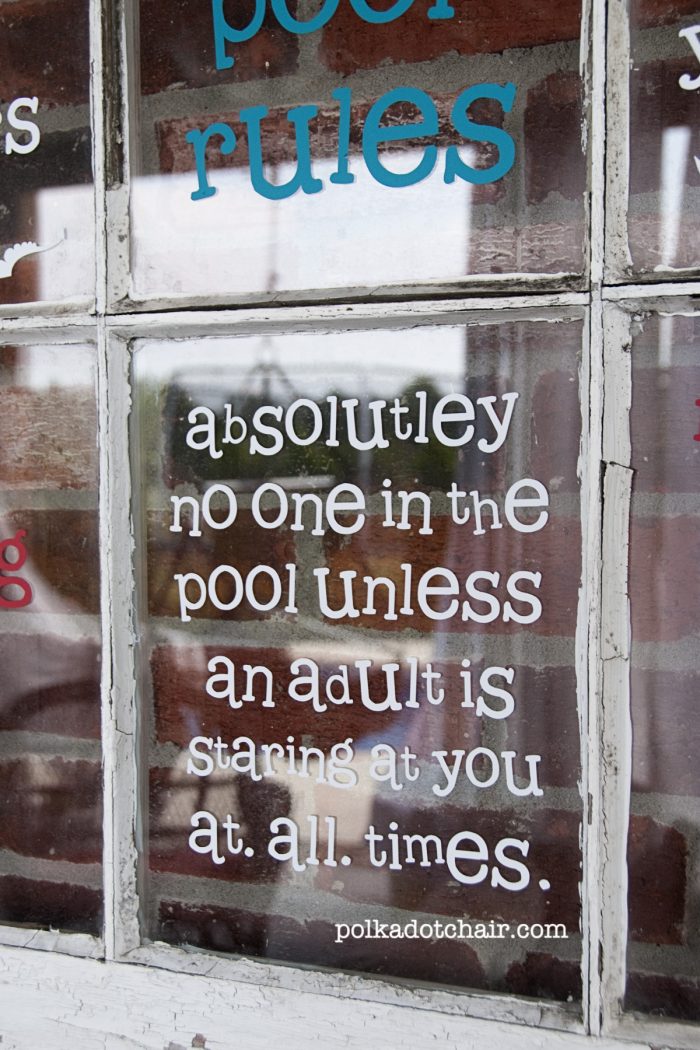 pool
rules
absolutley
no one in the
pool unless
an adult is
staring at you
at. all. times.
polkadotchair.com